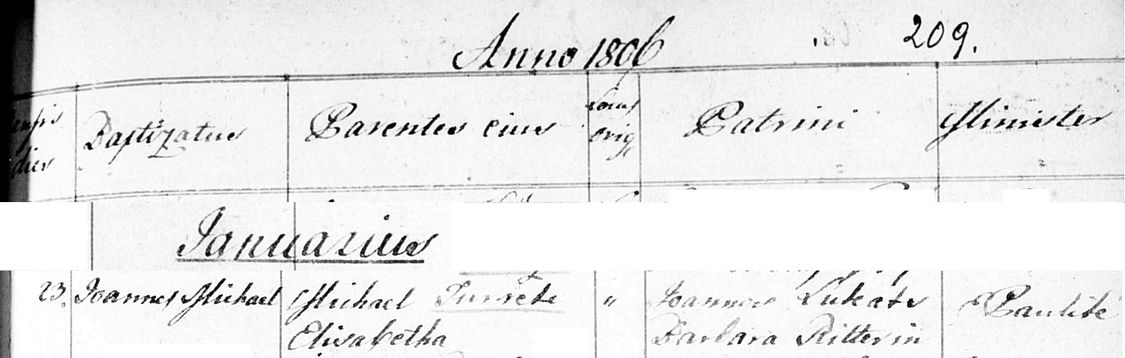 Anno 1806 209.
Baptizatus Parentes eius Locus orig. Patrini Minister
dies
Januarius
23. Joannes Michael Michael " Joannes Lukats
Elisabetha Barbara Ritterin